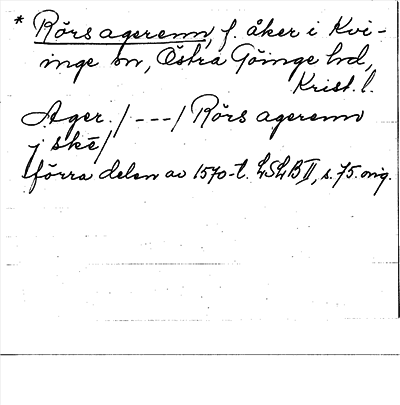 * Rörs agerenn, f. åker i Kvi-
inge sn, Östra Göinge hd,
Krist. l.
Ager. /---/ Rörs agerenn
j skē/
förra delen av 1570-t. LSLB II, s. 75. orig.